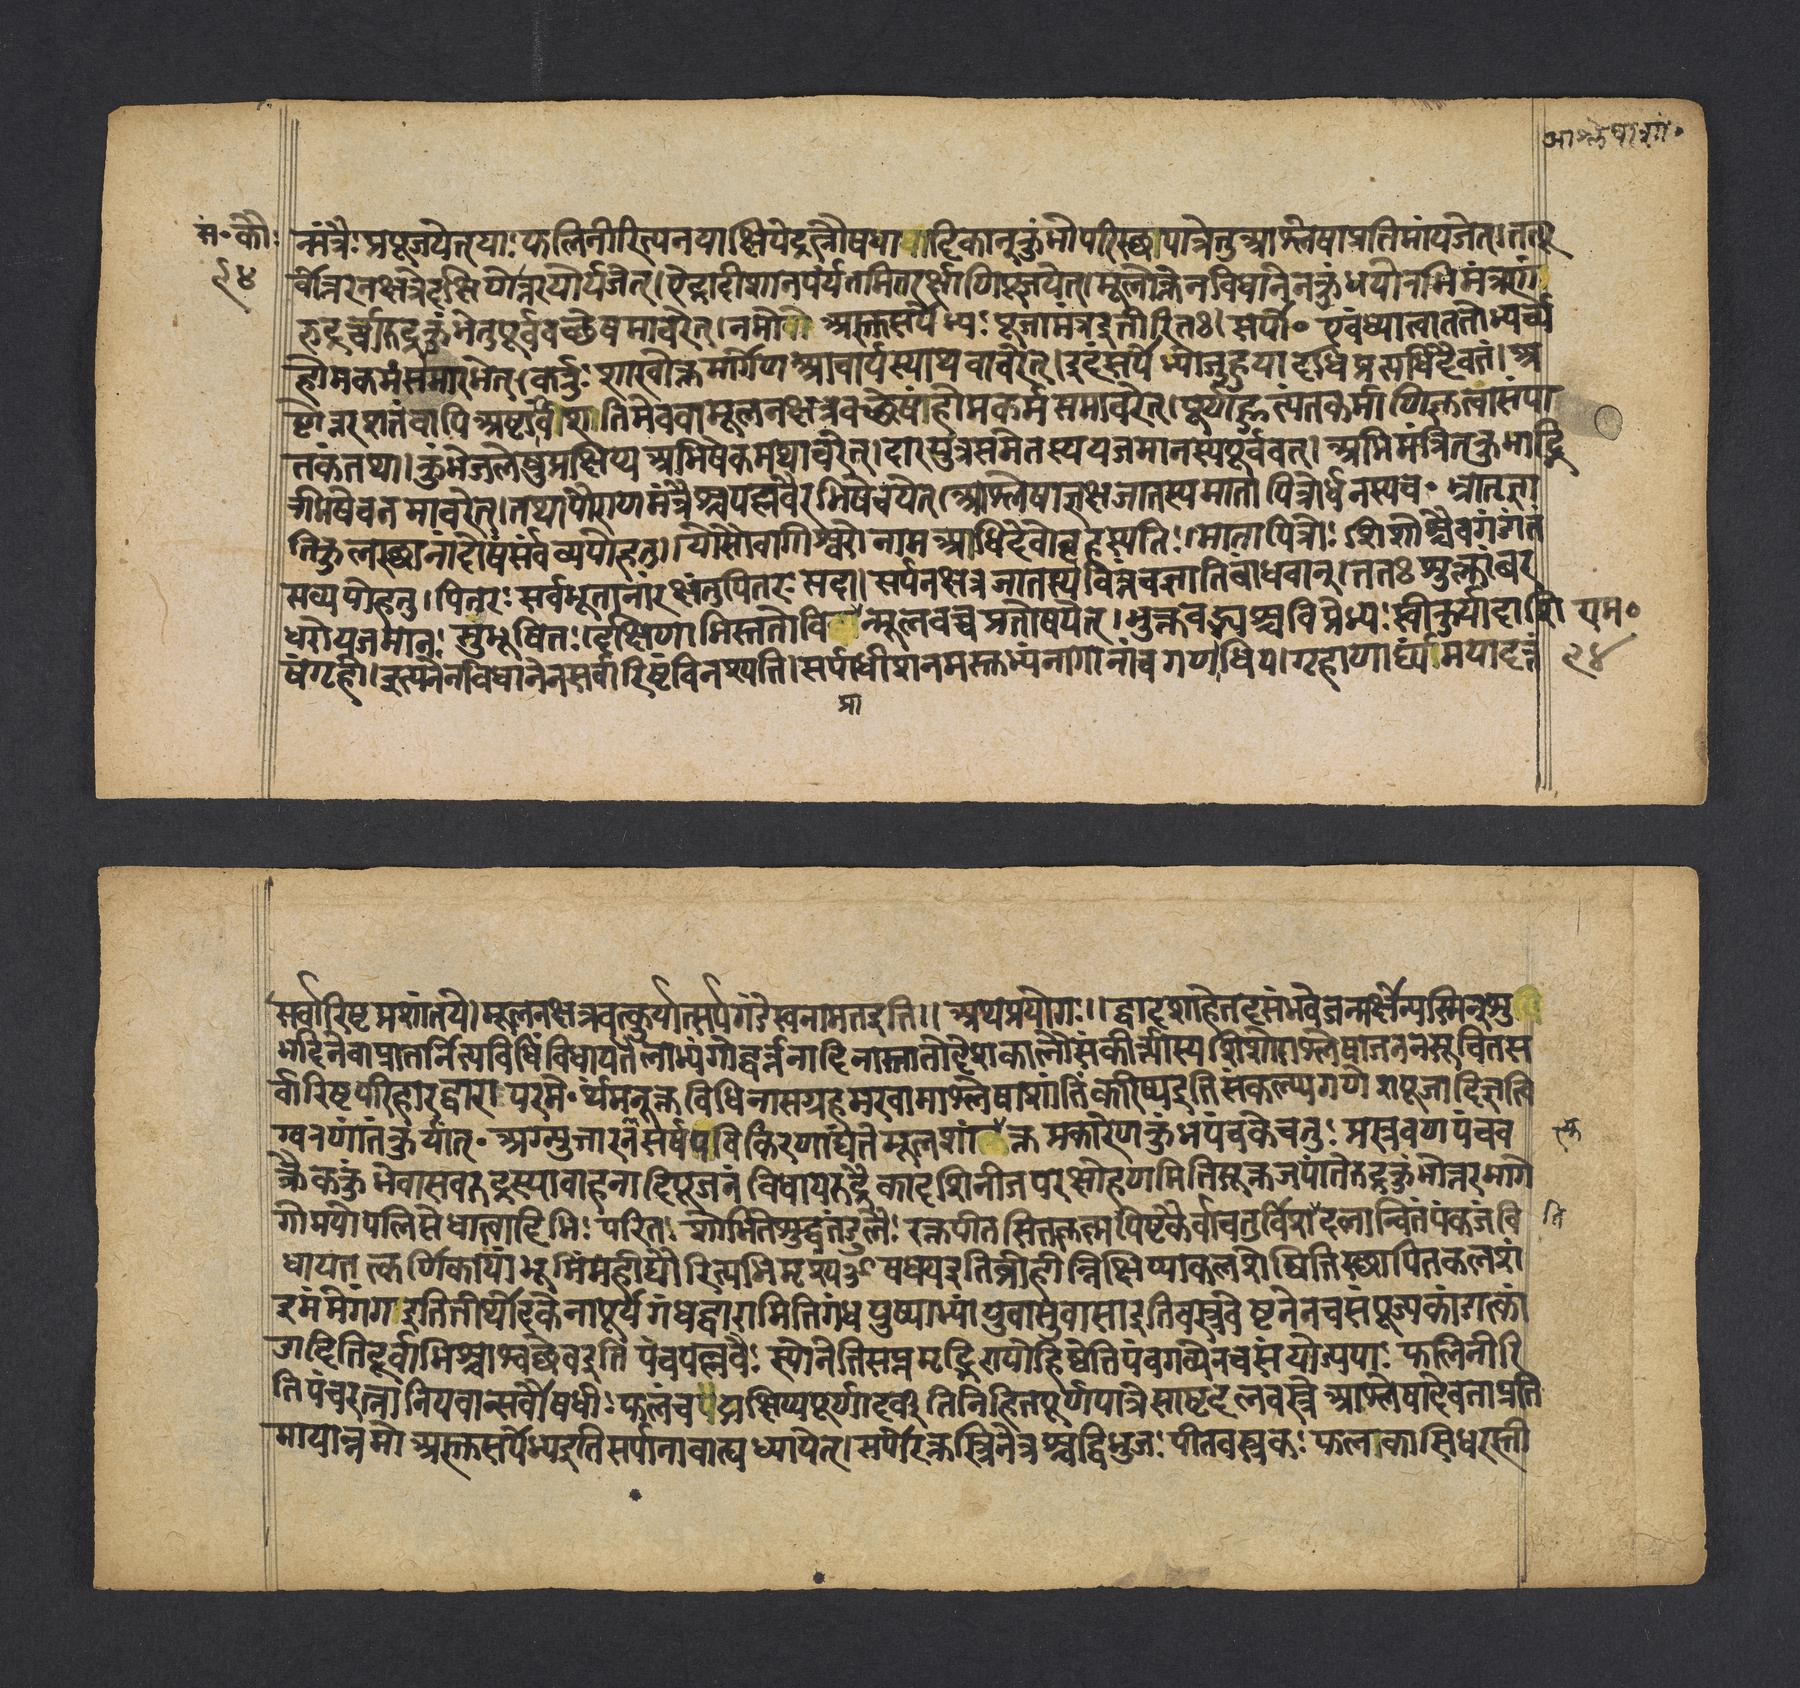 आश्लेषाशां॰
सं॰ कौ॰
२४
न्मंत्रैः प्रपूजयेत् याः फलिनीरित्यनया क्षिपेद्रत्नौषधादिकान् कुंभोपरिस्थापात्रेतु आश्लेषाप्रतिमां यजेत् । तत्पू
र्वोत्तरनक्षत्रे दक्षिणोत्तरयोर्यजेत् । ऐंद्रादीशानपर्यंतमितरर्क्षाणि पूजयेत् । मूलोक्तेन विधानेन कुंभयोनभिमंत्र्य
रुद्रर्च्चा रुद्रकुंभेतु पूर्ववच्छेषमाचरेत् । नमो अस्तु सर्पेभ्यः पूजामंत्र इतीरितः । सर्पो॰ एवं ध्यात्वा ततोभ्यर्च्य
होमकर्म समारभेत् । कर्तुः शाखोक्तमार्गेण आचार्यस्याथवाचरेत् । इदं सर्पेभ्यो जुहुयादधिप्रत्यधिदैवतं । अ
ष्टोत्तरशतं वापि अष्टाविंशतिमेववा मूलनक्षत्रवच्छेषं होमकर्म समाचरेत् । पूर्णाहुत्यंतकर्माणि कृत्वा संपा
तकं तथा । कुंभेजलेषु प्रक्षिप्य अभिषेकमथाचरेत् । दारसुत्रसमेतस्य यजमानस्य पूर्ववत् । अभिमंत्रितकुंभाद्भि
रभिषेचनमाचरेत् । तथा पौराणमंत्रैश्च पल्लवैरभिषेचयेत् आश्लेषाऋक्षजातस्य मातापित्रोर्धनस्यच॰ भ्रातृज्ञा
तिकुलास्थानां दोषं सर्वं व्यपोहतु । योसौ वागीश्वरो नाम अधिदेवो बृहस्पतिः । मातापित्रोः शिशोश्चैव गंडांतं
सव्यपोहतु । पितरः सर्वभूतानां रक्षंतु पितरः सदा । सर्पनक्षत्रजातस्य वित्तं च ज्ञातिबांधवान् । ततः शुक्लांबर
धरो यजमानः सुभूषितः । दक्षिणाभिस्ततो मूलवच्च प्रतोषयेत् । भुक्तवद्भ्यश्च विप्रेभ्यः स्वीकुर्यादाशि
राम॰
षं गृही । इत्यनेन विधानेन सर्वारिष्टं विनश्यति । सर्पाधीश नमस्तुभ्यं नागानां च गणाधिप । गृहाणार्घ्यं मयादत्तं
२४
प्रा
सर्वारिष्टप्रशांतये । मूलनक्षत्रवत्कुर्यात्सर्पगंडे स्वनामत इति ।। अथ प्रयोगः ।। द्वादशाहे तदसंभवे जन्मर्क्षेन्यस्मिन् शु
भदिने वा प्रातर्नित्यविधिं विधाय तैलाभ्यंगोद्वर्त्तनादिना स्नातो देशकालौ संकीर्त्यास्य शिशोराश्लेषाजननसूचितस
र्वारिष्टपरिहारद्वारा परमे॰ र्थममुक्तविधिना सग्रहमखामाश्लेषाशांतिं करिष्य इति संकल्प्य गणेशपूजादि ऋत्वि
ग्वरणांतं कुर्यात्॰ अग्न्युत्तारणं सर्षपविकिरणाद्यंते मूलशांत्युक्तप्रकारेण कुंभपंचके चतुः प्रस्रवण पंचव
क्त्रैककुंभेवासवरुद्रस्यावाहनादिपूजनं विधाय रुद्रैकादशिनीजप रक्षोहणमिति सूक्तजपांते रुद्रकुंभोत्तरभागे
गोमयोपलिप्ते धात्वादिभिः परितः शोभिते शुद्धतंडुलैः रक्तपीतसितकृष्णपिष्टकैर्वा चतुर्विंशदलान्वितं पंकजं वि
ति
धाय तत्कर्णिकायां भूमिं महीद्यौरित्यभिमृश्य ओषधय इति व्रीहीन्निक्षिप्याकलशेष्विति स्थापितकलशं
इमंमे गंग इति तीर्थोदकेनापूर्य गंधद्वारामिति गंधपुष्पाभ्यां युवासुवासा इति वस्त्रवेष्टनेन च संपूज्य कांडात्कां
डादिति दूर्वाभिश्चाश्वत्थेव इति पंचपल्लवैः स्योनेति सप्तमृद्भिरापोहिष्ठेति पंचगव्येन च संयोज्य याः फलिनीरि
ति पंचरत्नानि यवान्सर्वौषधीः फलं च प्रक्षिप्य पूर्णादर्वीति निहितपूर्णपात्रे साष्टदलवस्त्रे आश्लेषादेवताप्रति
मायां नमो अस्तु सर्पेभ्य इति सर्पानावाह्य ध्यायेत् । सर्पोरक्तस्त्रिनेत्रश्च द्विभुजः पीतवस्त्रकः फलकासिधरस्ती